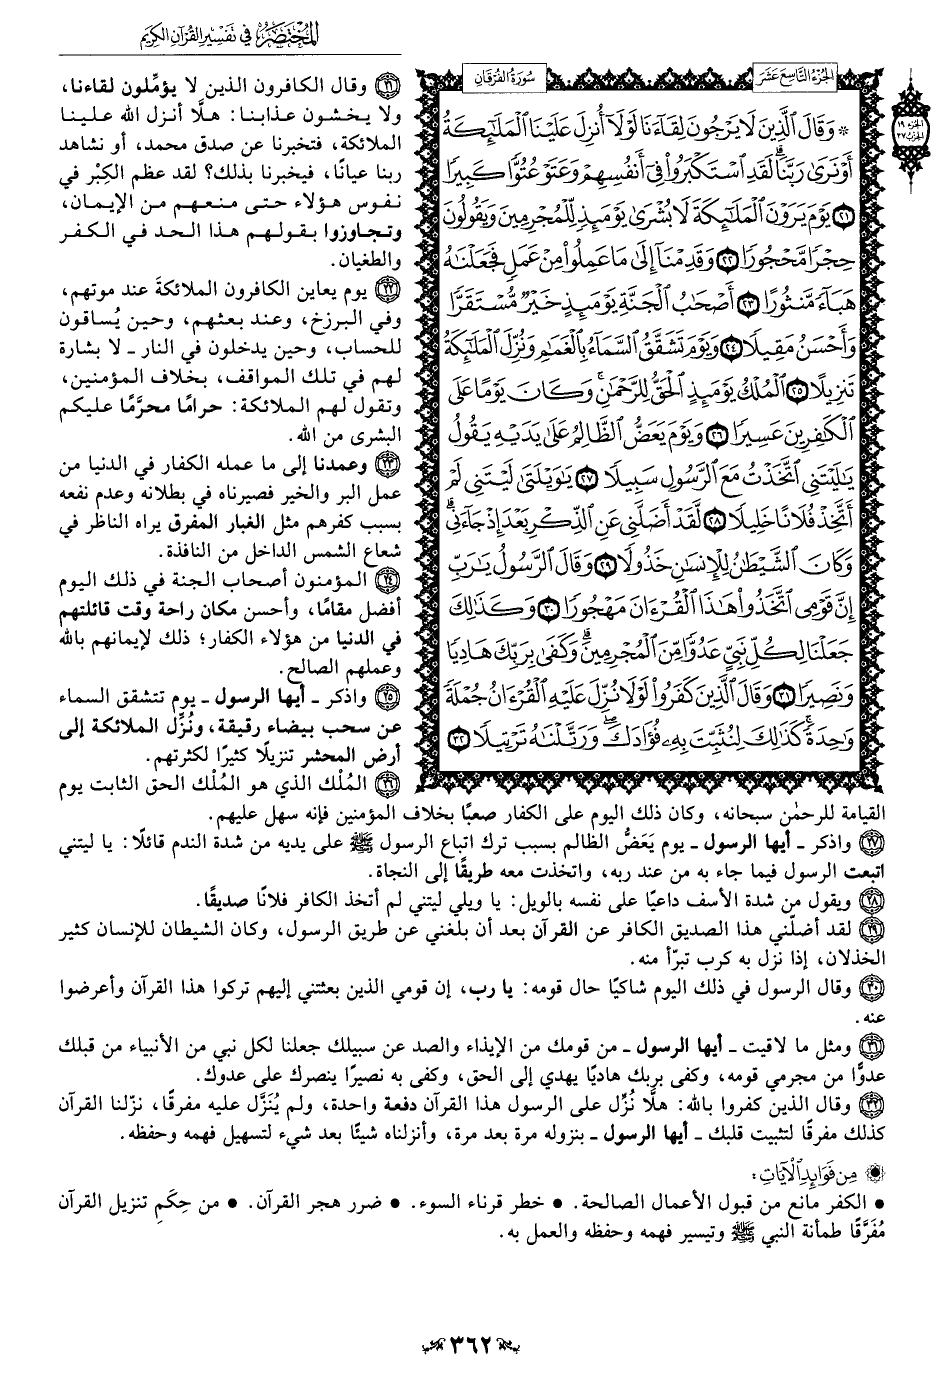 المختصر في تفسير القرآن الكريم
الجزء التاسع عشر
سورة الفرقان
الجزء ١٩
الحزب ٣٧
* وَقَالَ ٱلَّذِينَ لَا يَرْجُونَ لِقَآءَنَا لَوْلَآ أُنزِلَ عَلَيْنَا ٱلْمَلَٰٓئِكَةُ
أَوْ نَرَىٰ رَبَّنَا ۗ لَقَدِ ٱسْتَكْبَرُوا۟ فِىٓ أَنفُسِهِمْ وَعَتَوْ عُتُوًّا كَبِيرًا
٢١ يَوْمَ يَرَوْنَ ٱلْمَلَٰٓئِكَةَ لَا بُشْرَىٰ يَوْمَئِذٍ لِّلْمُجْرِمِينَ وَيَقُولُونَ
حِجْرًا مَّحْجُورًا ٢٢ وَقَدِمْنَآ إِلَىٰ مَا عَمِلُوا۟ مِنْ عَمَلٍ فَجَعَلْنَٰهُ
هَبَآءً مَّنثُورًا ٢٣ أَصْحَٰبُ ٱلْجَنَّةِ يَوْمَئِذٍ خَيْرٌ مُّسْتَقَرًّا
وَأَحْسَنُ مَقِيلًا ٢٤ وَيَوْمَ تَشَقَّقُ ٱلسَّمَآءُ بِٱلْغَمَٰمِ وَنُزِّلَ ٱلْمَلَٰٓئِكَةُ
تَنزِيلًا ٢٥ ٱلْمُلْكُ يَوْمَئِذٍ ٱلْحَقُّ لِلرَّحْمَٰنِ ۚ وَكَانَ يَوْمًا عَلَى
ٱلْكَٰفِرِينَ عَسِيرًا ٢٦ وَيَوْمَ يَعَضُّ ٱلظَّالِمُ عَلَىٰ يَدَيْهِ يَقُولُ
يَٰلَيْتَنِى ٱتَّخَذْتُ مَعَ ٱلرَّسُولِ سَبِيلًا ٢٧ يَٰوَيْلَتَىٰ لَيْتَنِى لَمْ
أَتَّخِذْ فُلَانًا خَلِيلًا ٢٨ لَّقَدْ أَضَلَّنِى عَنِ ٱلذِّكْرِ بَعْدَ إِذْ جَآءَنِى ۗ
وَكَانَ ٱلشَّيْطَٰنُ لِلْإِنسَٰنِ خَذُولًا ٢٩ وَقَالَ ٱلرَّسُولُ يَٰرَبِّ
إِنَّ قَوْمِى ٱتَّخَذُوا۟ هَٰذَا ٱلْقُرْءَانَ مَهْجُورًا ٣٠ وَكَذَٰلِكَ
جَعَلْنَا لِكُلِّ نَبِىٍّ عَدُوًّا مِّنَ ٱلْمُجْرِمِينَ ۗ وَكَفَىٰ بِرَبِّكَ هَادِيًا
وَنَصِيرًا ٣١ وَقَالَ ٱلَّذِينَ كَفَرُوا۟ لَوْلَا نُزِّلَ عَلَيْهِ ٱلْقُرْءَانُ جُمْلَةً
وَٰحِدَةً ۚ كَذَٰلِكَ لِنُثَبِّتَ بِهِۦ فُؤَادَكَ ۖ وَرَتَّلْنَٰهُ تَرْتِيلًا ٣٢
٢١ وقال الكافرون الذين لا يؤمِّلون لقاءنا،
ولا يخشون عذابنا: هلَّا أنزل الله علينا
الملائكة، فتخبرنا عن صدق محمد، أو نشاهد
ربنا عيانًا، فيخبرنا بذلك؟ لقد عظم الكِبْر في
نفوس هؤلاء حتى منعهم من الإيمان،
وتجاوزوا بقولهم هذا الحد في الكفر
والطغيان.
٢٢ يوم يعاين الكافرون الملائكةَ عند موتهم،
وفي البرزخ، وعند بعثهم، وحين يُساقون
للحساب، وحين يدخلون في النار ـ لا بشارة
لهم في تلك المواقف، بخلاف المؤمنين،
وتقول لهم الملائكة: حرامًا محرَّمًا عليكم
البشرى من الله.
٢٣ وعمدنا إلى ما عمله الكفار في الدنيا من
عمل البر والخير فصيرناه في بطلانه وعدم نفعه
بسبب كفرهم مثل الغبار المفرق يراه الناظر في
شعاع الشمس الداخل من النافذة.
٢٤ المؤمنون أصحاب الجنة في ذلك اليوم
أفضل مقامًا، وأحسن مكان راحة وقت قائلتهم
في الدنيا من هؤلاء الكفار؛ ذلك لإيمانهم بالله
وعملهم الصالح.
٢٥ واذكر ـ أيها الرسول ـ يوم تتشقق السماء
عن سحب بيضاء رقيقة، ونُزِّل الملائكة إلى
أرض المحشر تنزيلًا كثيرًا لكثرتهم.
٢٦ المُلْك الذي هو المُلْك الحق الثابت يوم
القيامة للرحمٰن سبحانه، وكان ذلك اليوم على الكفار صعبًا بخلاف المؤمنين فإنه سهل عليهم.
٢٧ واذكر ـ أيها الرسول ـ يوم يَعَضُّ الظالم بسبب ترك اتباع الرسول ﷺ على يديه من شدة الندم قائلًا: يا ليتني
اتبعت الرسول فيما جاء به من عند ربه، واتخذت معه طريقًا إلى النجاة.
٢٨ ويقول من شدة الأسف داعيًا على نفسه بالويل: يا ويلي ليتني لم أتخذ الكافر فلانًا صديقًا.
٢٩ لقد أضلّني هذا الصديق الكافر عن القرآن بعد أن بلغني عن طريق الرسول، وكان الشيطان للإنسان كثير
الخذلان، إذا نزل به كرب تبرّأ منه.
٣٠ وقال الرسول في ذلك اليوم شاكيًا حال قومه: يا رب، إن قومي الذين بعثتني إليهم تركوا هذا القرآن وأعرضوا
عنه.
٣١ ومثل ما لاقيت ـ أيها الرسول ـ من قومك من الإيذاء والصد عن سبيلك جعلنا لكل نبي من الأنبياء من قبلك
عدوًّا من مجرمي قومه، وكفى بربك هاديًا يهدي إلى الحق، وكفى به نصيرًا ينصرك على عدوك.
٣٢ وقال الذين كفروا بالله: هلَّا نُزِّل على الرسول هذا القرآن دفعة واحدة، ولم يُنَزَّل عليه مفرقًا، نزّلنا القرآن
كذلك مفرقًا لتثبيت قلبك ـ أيها الرسول ـ بنزوله مرة بعد مرة، وأنزلناه شيئًا بعد شيء لتسهيل فهمه وحفظه.
من فوائد الآيات:
• الكفر مانع من قبول الأعمال الصالحة. • خطر قرناء السوء. • ضرر هجر القرآن. • من حِكَمِ تنزيل القرآن
مُفَرَّقًا طمأنة النبي ﷺ وتيسير فهمه وحفظه والعمل به.
٣٦٢